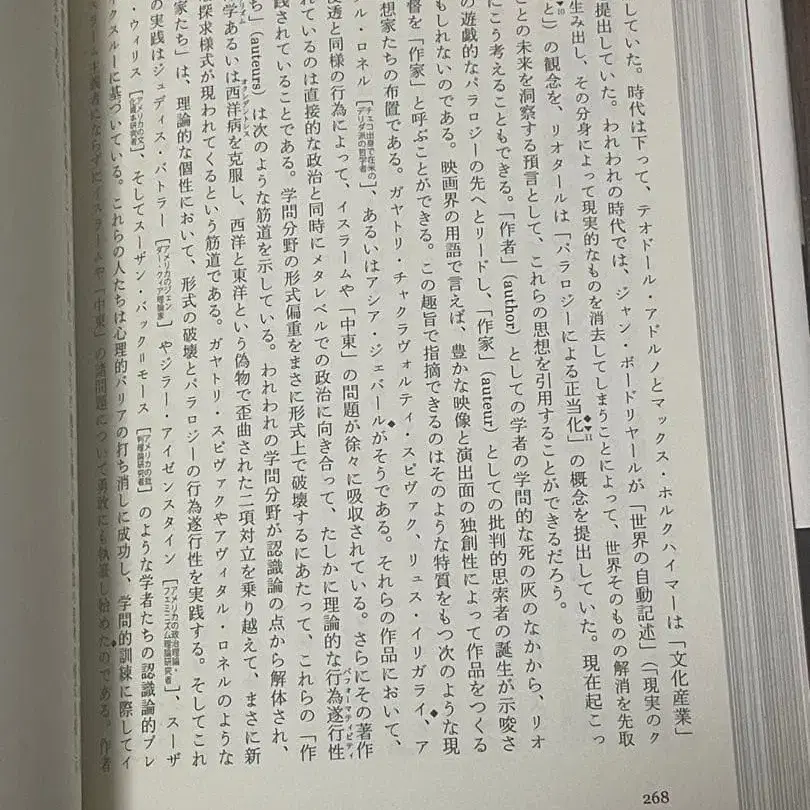 していた。時代は下って、テオドール・アドルノとマックス・ホルクハイマーは「文化産業」
提出していた。われわれの時代では、ジャン・ボードリヤールが「世界の自動記述」(「現実のク
生み出し、その分身によって現実的なものを消去してしまうことによって、世界そのものの解消を先取
と」▼10の観念を、リオタールは「パラロジーによる正当化」◆▼11の概念を提出していた。現在起こっ
ことの未来を洞察する預言として、これらの思想を引用することができるだろう。
にこう考えることもできる。「作者」(author)としての学者の学問的な死の灰のなかから、リオ
の遊戯的なパラロジーの先へとリードし、「作家」(auteur)としての批判的思索者の誕生が示唆さ
もしれないのである。映画界の用語で言えば、豊かな映像と演出面の独創性によって作品をつくる
督を「作家」と呼ぶことができる。この趣旨で指摘できるのはそのような特質をもつ次のような現
想家たちの布置である。ガヤトリ・チャクラヴォルティ・スピヴァク、リュス・イリガライ◆、ア
ル・ロネル[チェコ出身で在米のデリダ派の哲学者]、あるいはアシア・ジェバール◆がそうである。それらの作品において、
浸透と同様の行為によって、イスラームや「中東」の問題が徐々に吸収されている。さらにその著作
れているのは直接的な政治と同時にメタレベルでの政治に向き合って、たしかに理論的な行為遂行性パフォーマティビティ
践されていることである。学問分野の形式偏重をまさに形式上で破壊するにあたって、これらの「作
ち」(auteurs)は次のような筋道を示している。われわれの学問分野が認識論の点から解体され、
学あるいは西洋病オクシデントシスを克服し、西洋と東洋という偽物で歪曲された二項対立を乗り越えて、まさに新
探求様式が現われてくるという筋道である。ガヤトリ・スピヴァクやアヴィタル・ロネルのような
家たち」は、理論的な個性において、形式の破壊とパラロジーの行為遂行性を実践する。そしてこれ
の実践はジュディス・バトラー[アメリカのジェンダー・クィア理論家]やジラー・アイゼンスタイン[アメリカの政治理論・フェミニズム理論研究者]、スーザ
・ウィリス[アメリカの文化資本研究者]、そしてスーザン・バック＝モース[アメリカの批判理論研究者]のような学者たちの認識論的ブレ
クスルーに基づいている。これらの人たちは心理的バリアの打ち消しに成功し、学問的訓練に際してイ
ーム主義者にならずにイスラームや「中東」の諸問題について勇敢にも執筆し始めた◆のである。作者
268